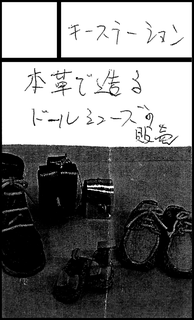 キーステーション
本革で造る
ドールシューズの
販売